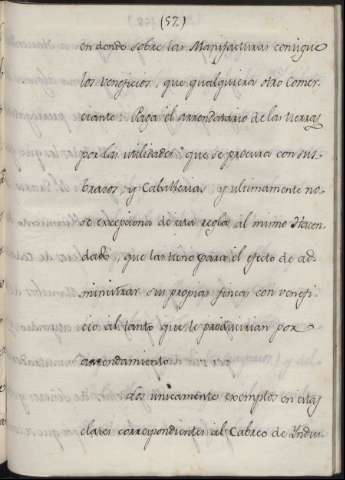 (57)
en donde sobre las Manifacturas consigue
los veneficios, que qualquiera otro Comer-
ciante: Paga el arrendatario de las tierras
por las utilidades que se procura con sus
brazos, y Caballerias, y ultimamente no
se excepciona de esta regla al mismo Hacen-
dado, que las tiene para el efecto de ad-
ministrar sus propias fincas con venefi-
cio al tanto que le produzirian por
arrendamiento.
Los unicamente exemptos en estas
clases correspondientes al Cabreo de Indus-